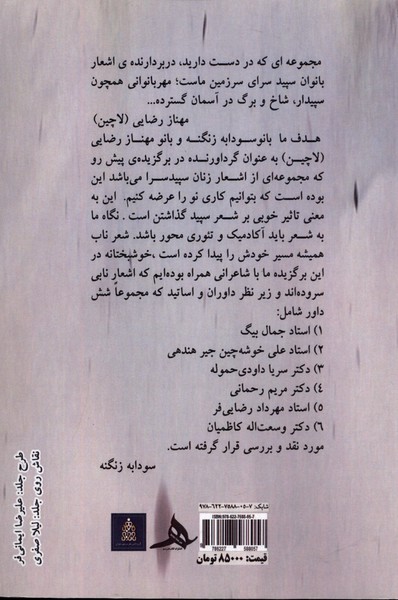 مجموعه ای که در دست دارید، دربردارنده ی اشعار
بانوان سپید سرای سرزمین ماست؛ مهربانوانی همچون
سپیدار، شاخ و برگ در آسمان گسترده...
مهناز رضایی (لاچین)
هدف ما بانوسودابه زنگنه و بانو مهناز رضایی
(لاچین) به عنوان گردآورنده در برگزیده‌ی پیش رو
که مجموعه‌ای از اشعار زنان سپیدسرا می‌باشد این
بوده است که بتوانیم کاری نو را عرضه کنیم. این به
معنی تاثیر خوبی بر شعر سپید گذاشتن است. نگاه ما
به شعر باید آکادمیک و تئوری محور باشد. شعر ناب
همیشه مسیر خودش را پیدا کرده است،خوشبختانه در
این برگزیده ما با شاعرانی همراه بوده‌ایم که اشعار نابی
سروده‌اند و زیر نظر داوران و اساتید که مجموعاً شش
داور شامل:
۱) استاد جمال بیگ
۲) استاد علی خوشه‌چین جیر هندهی
۳) دکتر سریا داودی‌حموله
۴) دکتر مریم رحمانی
۵) استاد مهرداد رضایی‌فر
۶) دکتر وسعت‌اله کاظمیان
مورد نقد و بررسی قرار گرفته است.
سودابه زنگنه
طرح جلد: علیرضا ایمانی‌فر
نقاش روی جلد: لیلا صفری
شابک: ۷-۰۵-۷۵۸۸-۶۲۲-۹۷۸
ISBN: 978-622-7588-05-7
9 786227 588057
قیمت: ۸۵۰۰۰ تومان